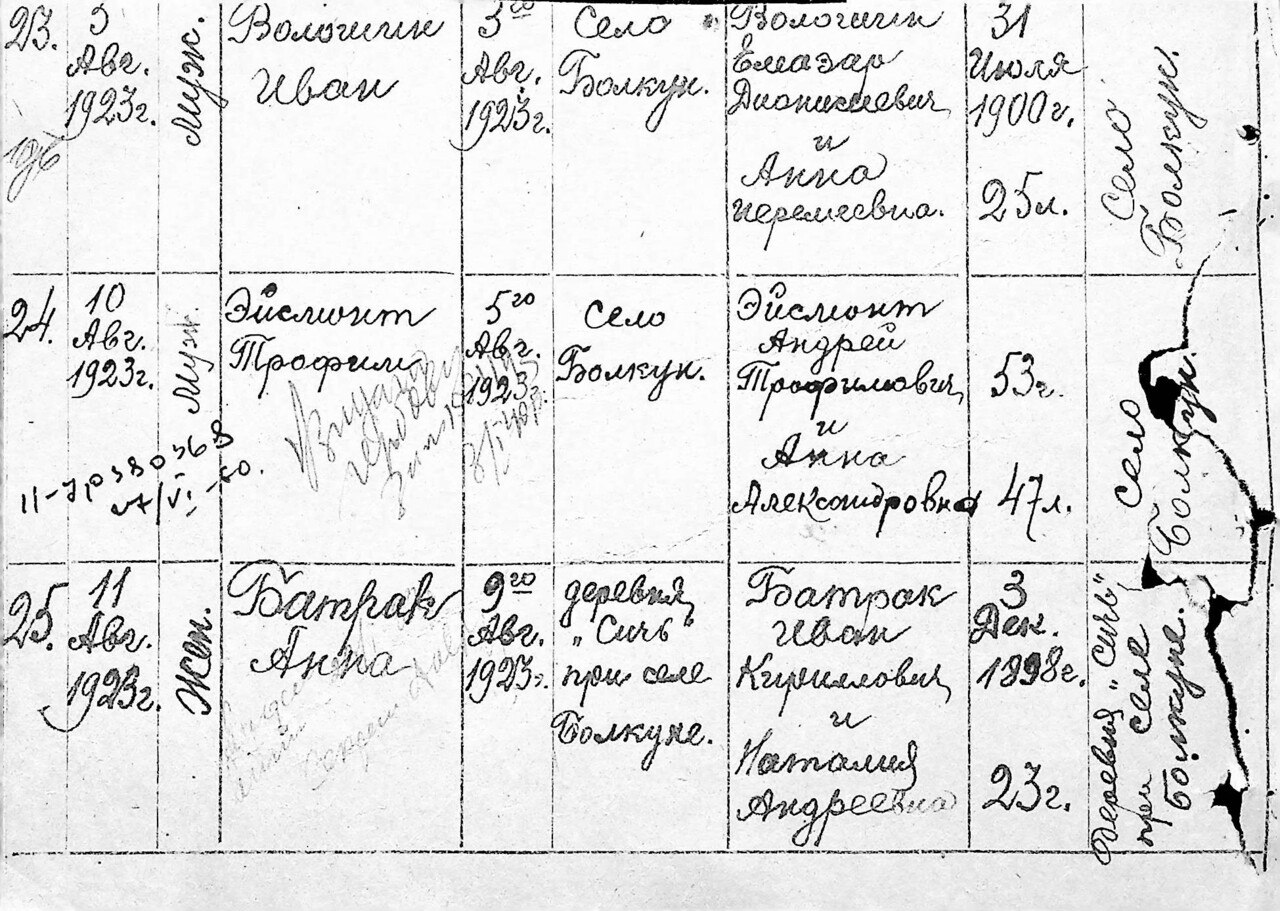 23.
5
Авг.
1923г.
Муж.
Вологиин
Иван
5го
Авг.
1923г.
Село
Болкун.
Вологиин
Елиазар
Дионисиевич
и
Анна
31
Июля
1900г.
25л.
Село
Болкун.
24.
10
Авг.
1923г.
Муж.
Эйсмонт
Трофим
5го
Авг.
1923г.
село
Болкун.
Эйсмонт
Андрей
Трофимович,
и
Анна
Александровна
53г.
47л.
село
Болкун.
25.
11
Авг.
1923г.
Жен.
Батрак
Анна
9го
Авг.
1923г.
деревня,
„Сичь"
при селе
Болкуне.
Батрак
Иван
Кириллович,
и
Наталия
Андреевна
3
Дек.
1898г.
23г.
деревня „Сичь"
при селе
Болкуне.